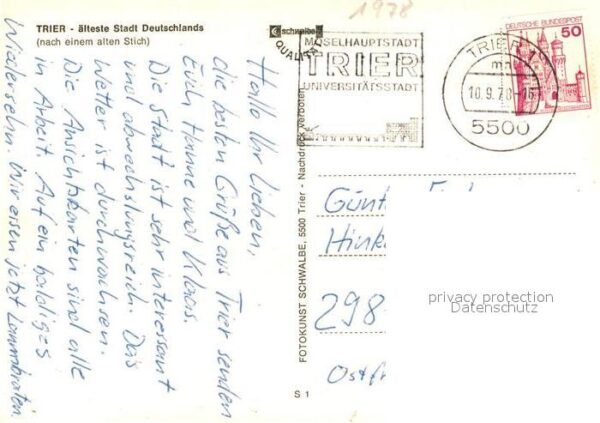 TRIER - älteste Stadt Deutschlands
(nach einem alten Stich)
Hallo Ihr Lieben,
die besten Grüße aus Trier senden
Euch Hanne und Klaas.
Die Stadt ist sehr interessant
und abwechslungsreich. Das
Wetter ist durchwachsen.
Die Ansichtskarten sind alle
in Arbeit. Auf ein baldiges
Wiedersehn. Wir essen jetzt Lammbraten.
schwalbe
QUALITÄT
FOTOKUNST SCHWALBE, 5500 Trier - Nachdruck verboten
S 1
1978
MOSELHAUPTSTADT
TRIER
UNIVERSITÄTSSTADT
TRIER
10.9.78-16
5500
DEUTSCHE BUNDESPOST
50
Günt
Hink
298
Ostfr
privacy protection
Datenschutz